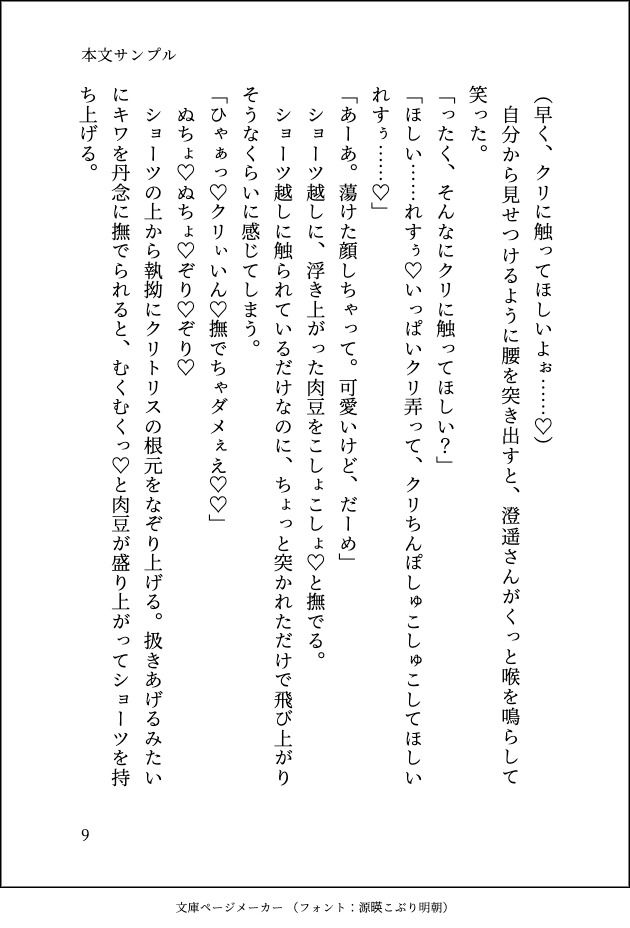 本文サンプル
(早く、クリに触ってほしいよぉ……♡)
自分から見せつけるように腰を突き出すと、澄遥さんがくっと喉を鳴らして
笑った。
「ったく、そんなにクリに触ってほしい?」
「ほしい……れすぅ♡いっぱいクリ弄って、クリちんぽしゅこしゅこしてほしい
れすぅ……♡」
「あーあ。蕩けた顔しちゃって。可愛いけど、だーめ」
ショーツ越しに、浮き上がった肉豆をこしょこしょ♡と撫でる。
ショーツ越しに触られているだけなのに、ちょっと突かれただけで飛び上がり
そうなくらいに感じてしまう。
「ひゃぁっ♡クリぃいん♡撫でちゃダメぇえ♡♡」
ぬちょ♡ぬちょ♡ぞり♡ぞり♡
ショーツの上から執拗にクリトリスの根元をなぞり上げる。扱きあげるみたい
にキワを丹念に撫でられると、むくむくっ♡と肉豆が盛り上がってショーツを持
ち上げる。
9
文庫ページメーカー(フォント:源暎こぶり明朝)